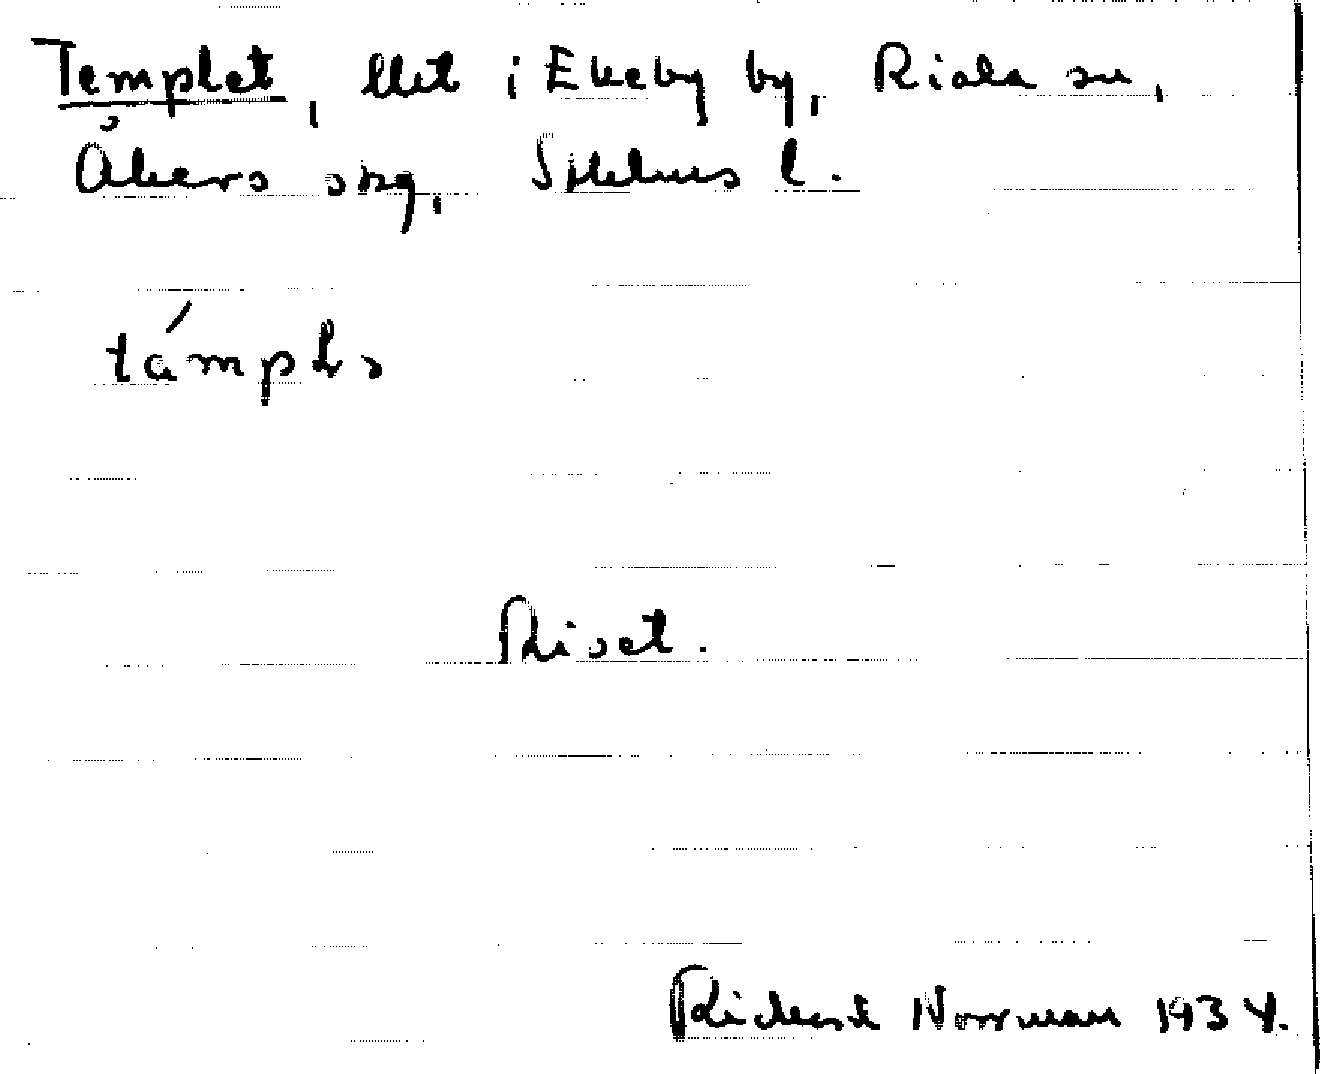 Templet, lht i Ekeby by, Riala sn,
Åkers skg, Sthlms l.
Rivet.
Rickard Norrman 1934.